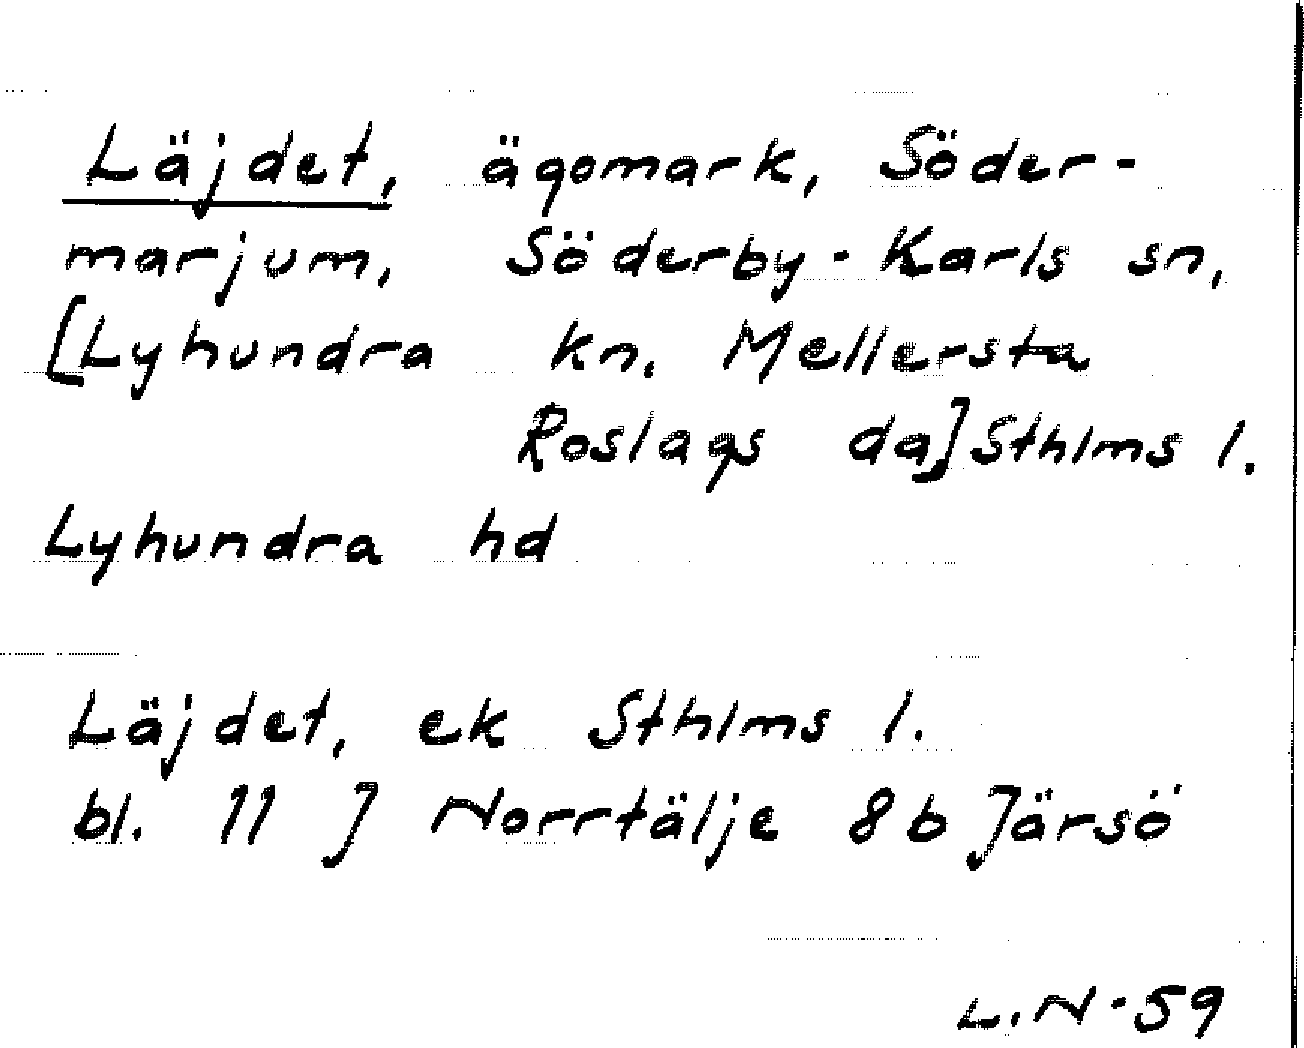 Läjdet, ägomark, Söder-
marjum, Söderby-Karls sn,
[Lyhundra kn. Mellersta
Roslags da] Sthlms l.
Lyhundra hd
Läjdet, ek Sthlms l.
bl. 11 J Norrtälje 8b Järsö
L.N-59